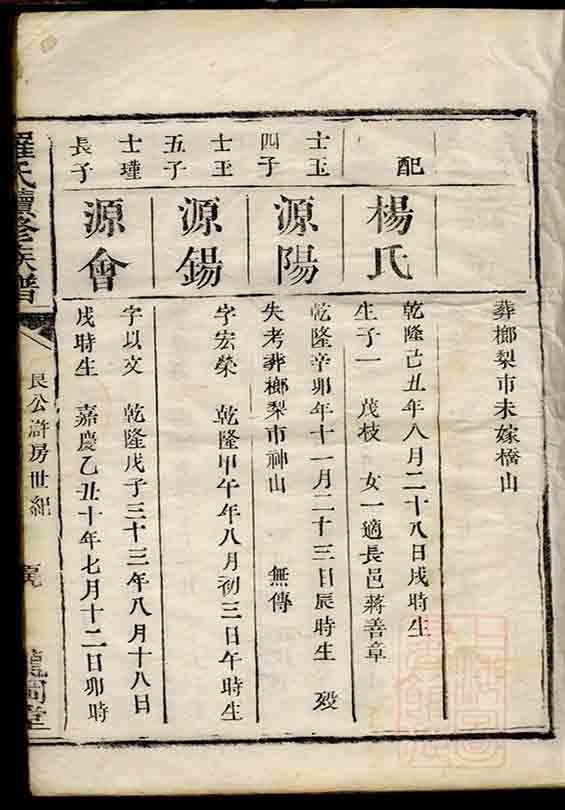 葬㮾梨市未嫁橋山
配
楊氏
乾隆己丑年八月二十八日戌時生
生子一 茂枝 女一適長邑蔣善章
士玉
四子
源陽
乾隆辛卯年十一月二十三日辰時生 歿
失考葬㮾梨市神山 無傳
士玉
五子
源錫
字宏榮 乾隆甲午年八月初三日午時生
士瑾
長子
源會
字以文 乾隆戊子三十三年八月十八日
戌時生 嘉慶乙丑十年七月十二日卯時
羅氏續修族譜
艮公滸房世紀